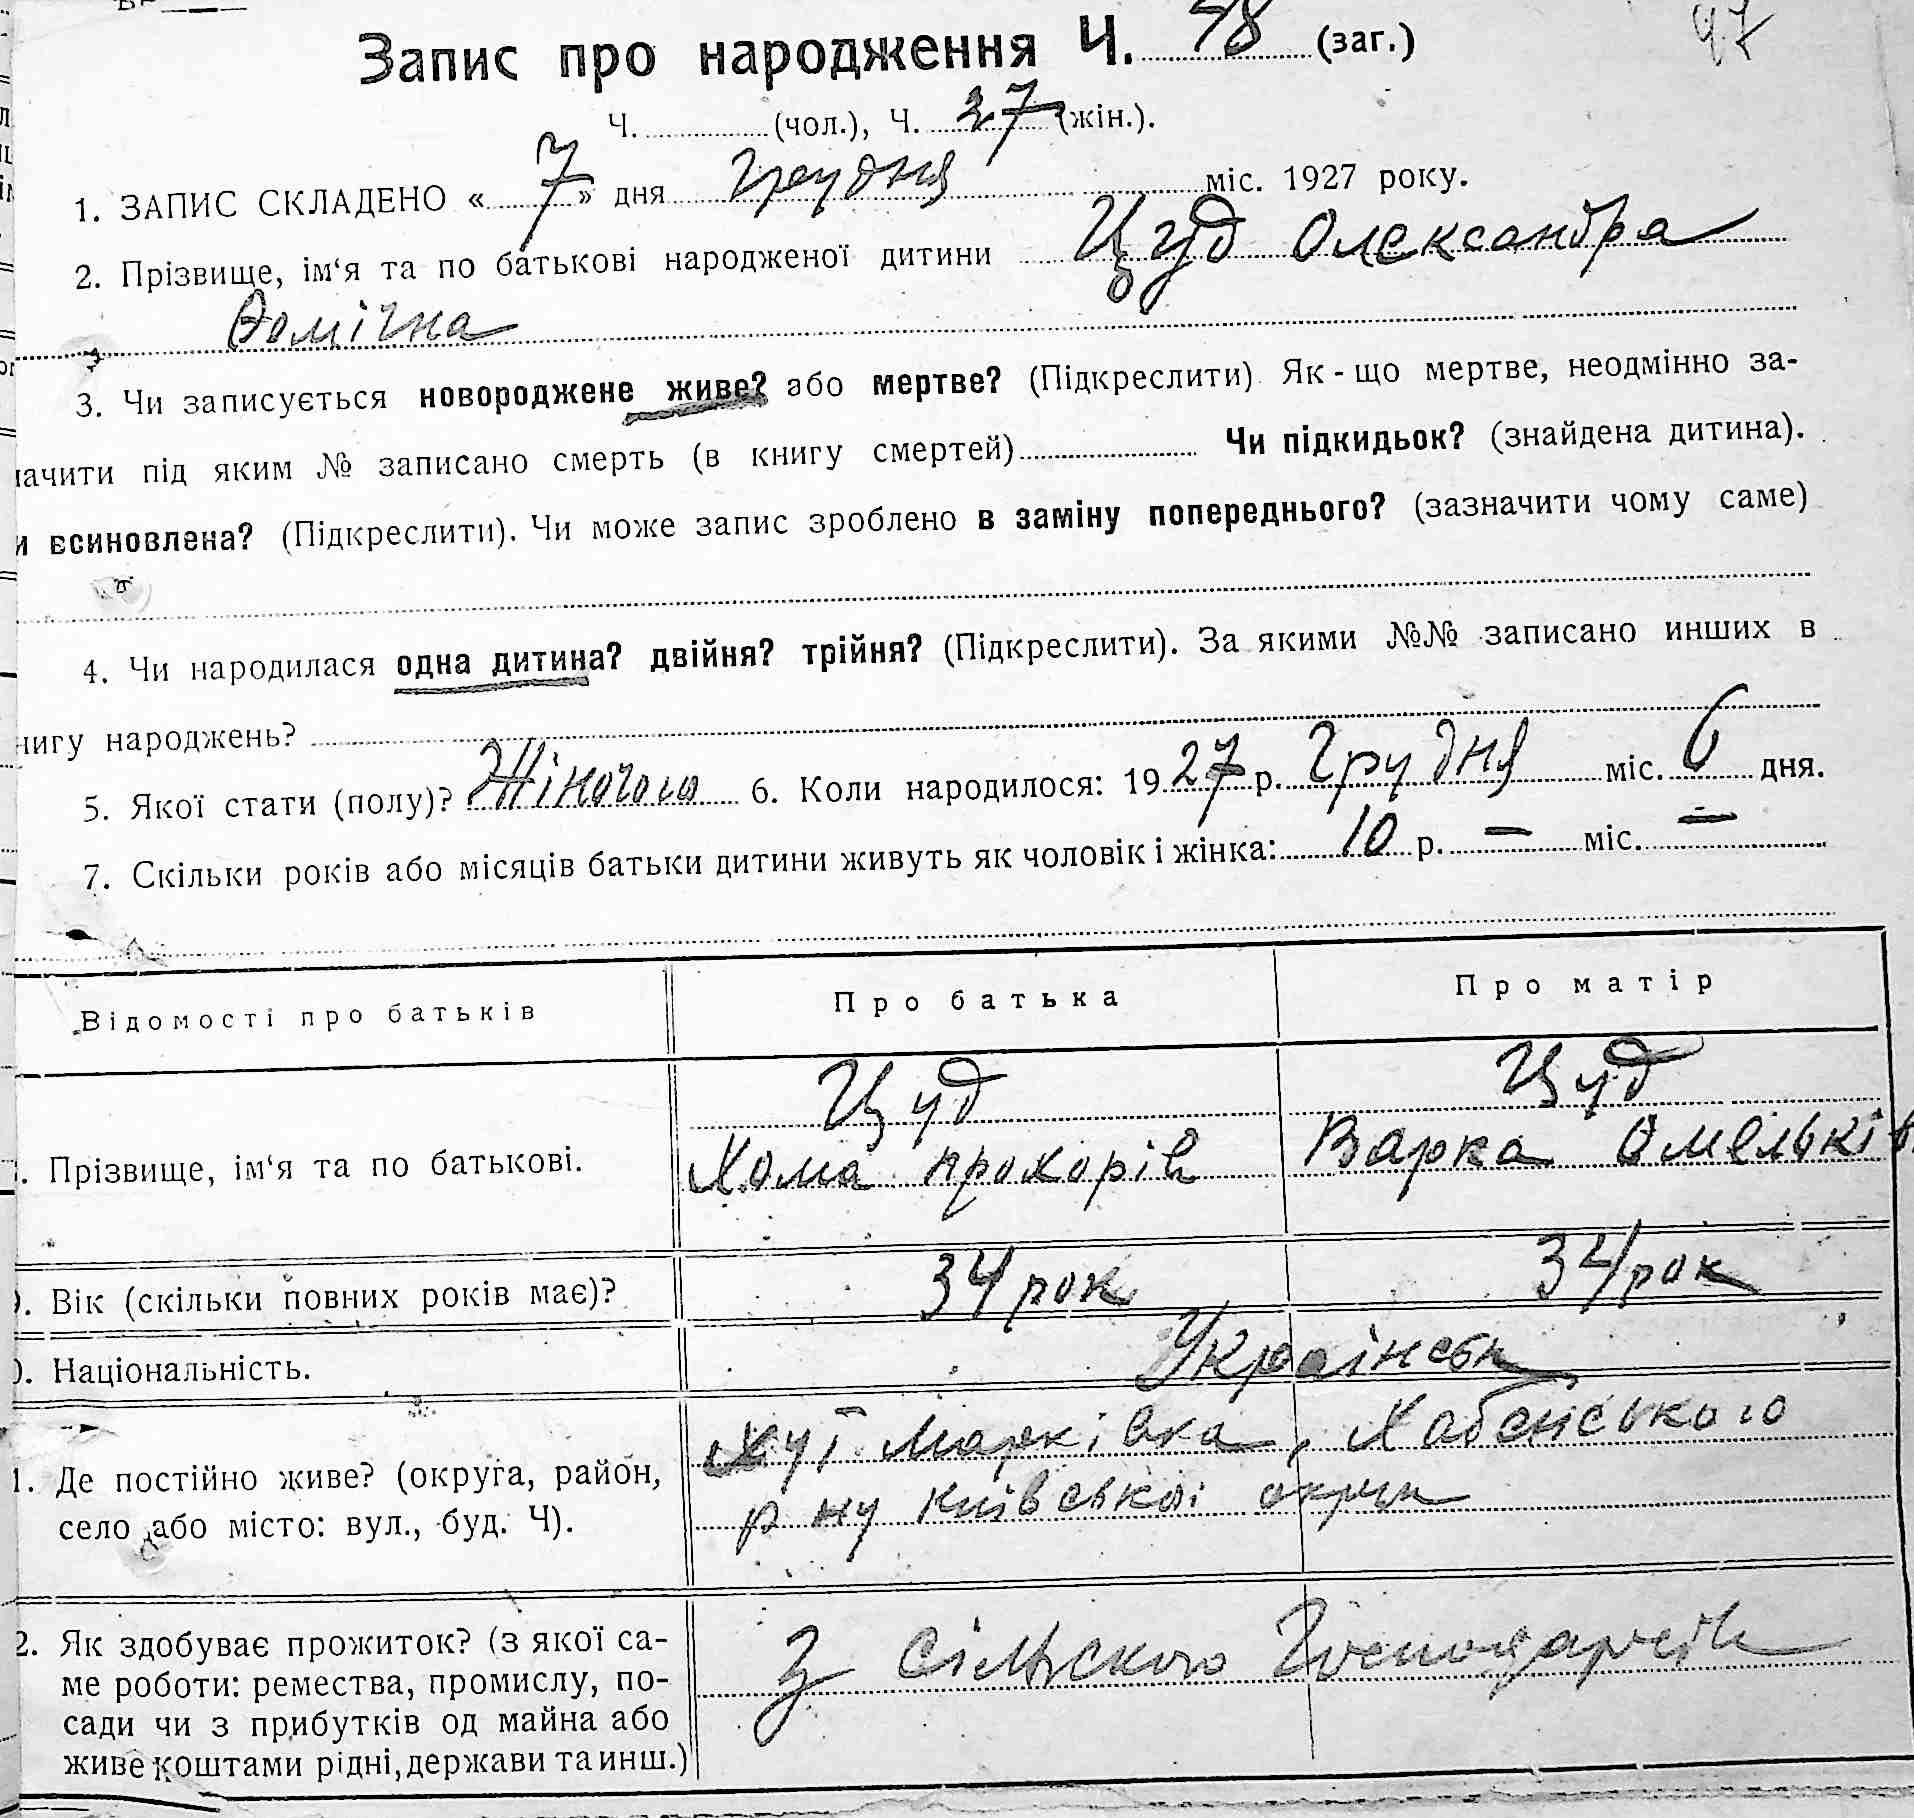 Запис про народження Ч. 48 (заг.)
47
Ч. (чол.), Ч. 27 (жін.).
1. ЗАПИС СКЛАДЕНО « 7 » дня Грудня міс. 1927 року.
2. Прізвище, ім‘я та по батькові народженої дитини Цуд Олександра
Хомічна
3. Чи записується новороджене живе? або мертве? (Підкреслити) Як-що мертве, неодмінно за-
начити під яким № записано смерть (в книгу смертей) Чи підкидьок? (знайдена дитина).
и всиновлена? (Підкреслити). Чи може запис зроблено в заміну попереднього? (зазначити чому саме)
4. Чи народилася одна дитина? двійня? трійня? (Підкреслити). За якими №№ записано инших в
нигу народжень?
5. Якої стати (полу)? Жіночого 6. Коли народилося: 1927 р. Грудня міс. 6 дня.
7. Скільки років або місяців батьки дитини живуть як чоловік і жінка: 10 р. — міс. —
Відомості про батьків Про батька Про матір
Цуд Цуд
. Прізвище, ім‘я та по батькові. Хома прохорів Варка Омельків
. Вік (скільки повних років має)? 34 рок 34 рок
. Національність. Українськ
Хут Марківка, Хабенського
1. Де постійно живе? (округа, район,
р ну київської округи
село або місто: вул., буд. Ч).
2. Як здобуває прожиток? (з якої са-
З сільского Господарств
ме роботи: ремества, промислу, по-
сади чи з прибутків од майна або
живе коштами рідні, держави та инш.)